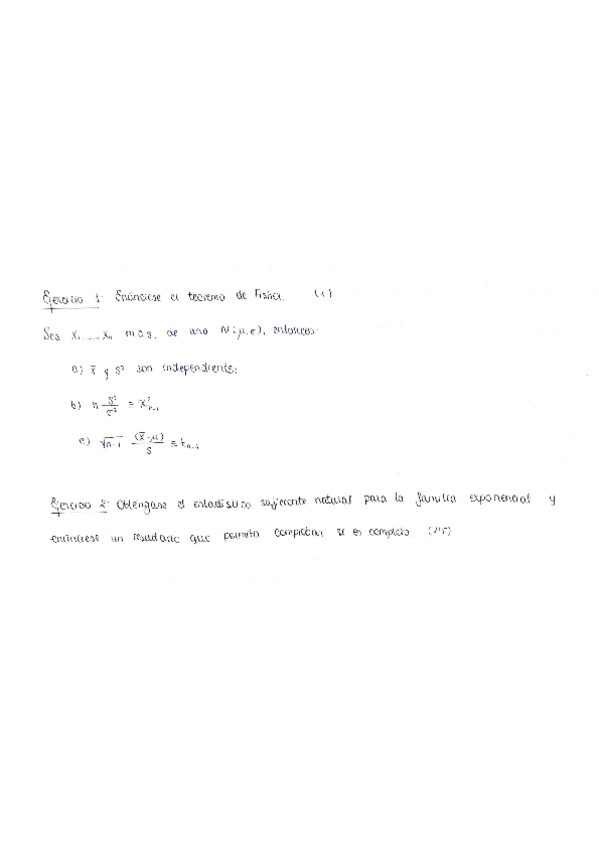 Ejercicio 1: Enúnciese el teorema de Fisher. (1)
Sea X₁,...,Xₙ m.a.s. de una N(μ,σ), entonces:
a) x̄ y S² son independientes.
b) n S²/σ² ≡ χ²ₙ₋₁
c) √n-1 (x̄-μ)/S ≡ tₙ₋₁
Ejercicio 2: Obténgase el estadístico suficiente natural para la familia exponencial y
enúnciese un resultado que permita comprobar si es completo.